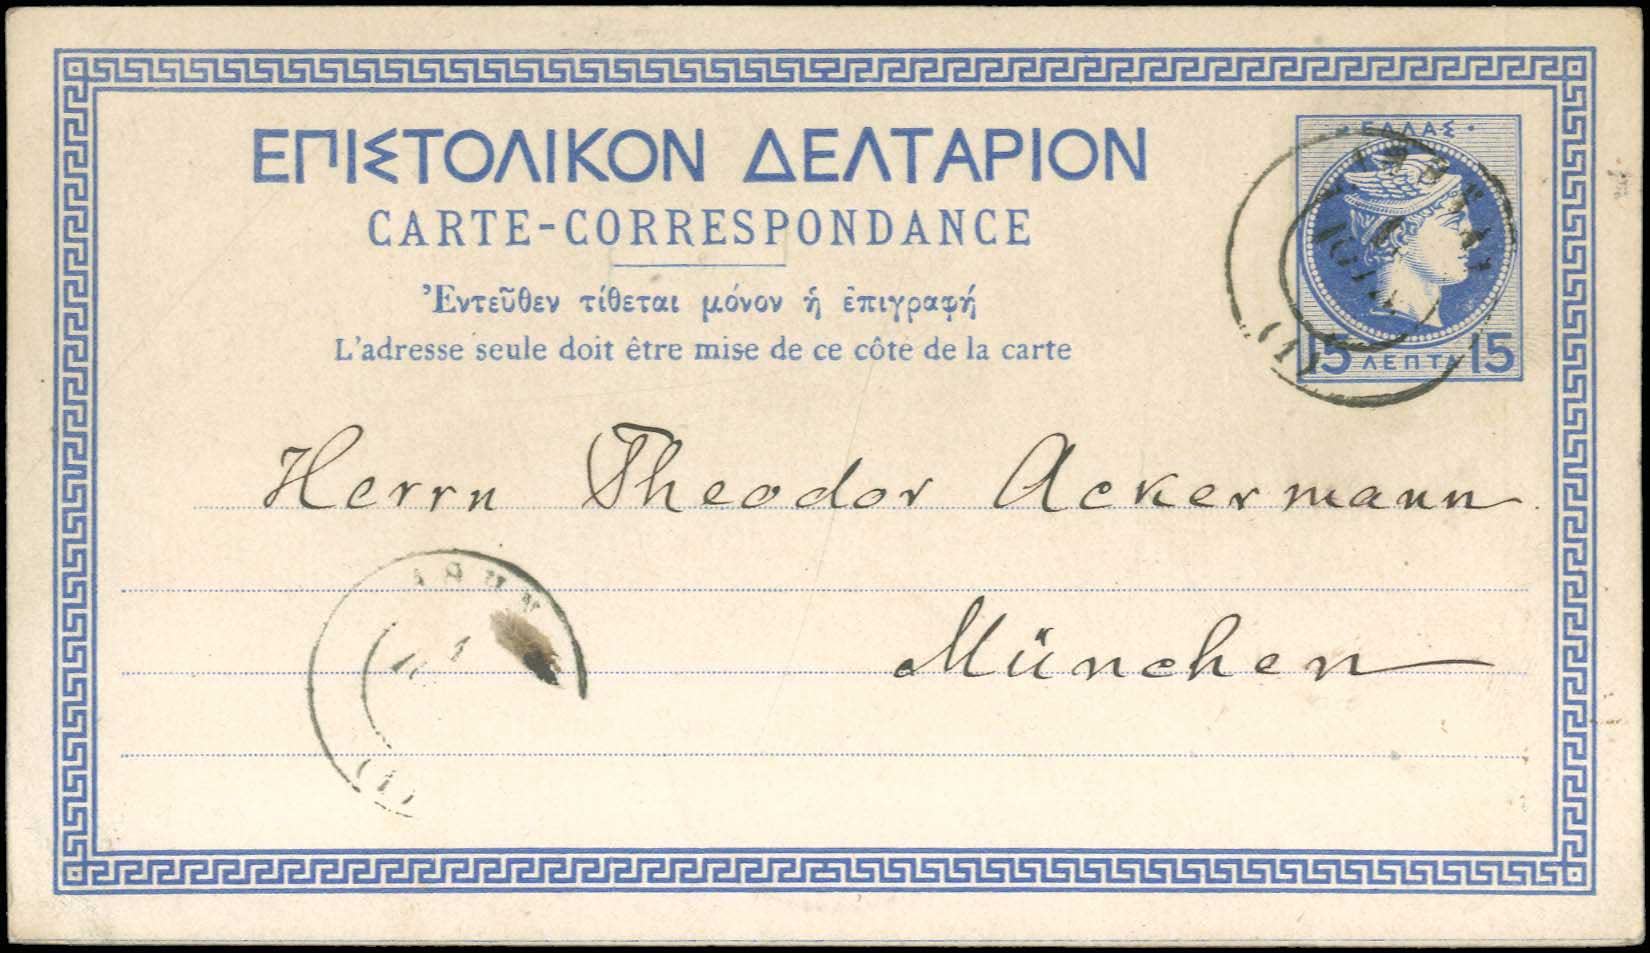 ΕΠΙΣΤΟΛΙΚΟΝ ΔΕΛΤΑΡΙΟΝ
CARTE-CORRESPONDANCE
Ἐντεῦθεν τίθεται μόνον ἡ ἐπιγραφή
L'adresse seule doit être mise de ce côté de la carte
ΕΛΛΑΣ
15 ΛΕΠΤΑ 15
(1)
Herrn Theodor Ackermann
München
ΑΘΗΝ
(1)